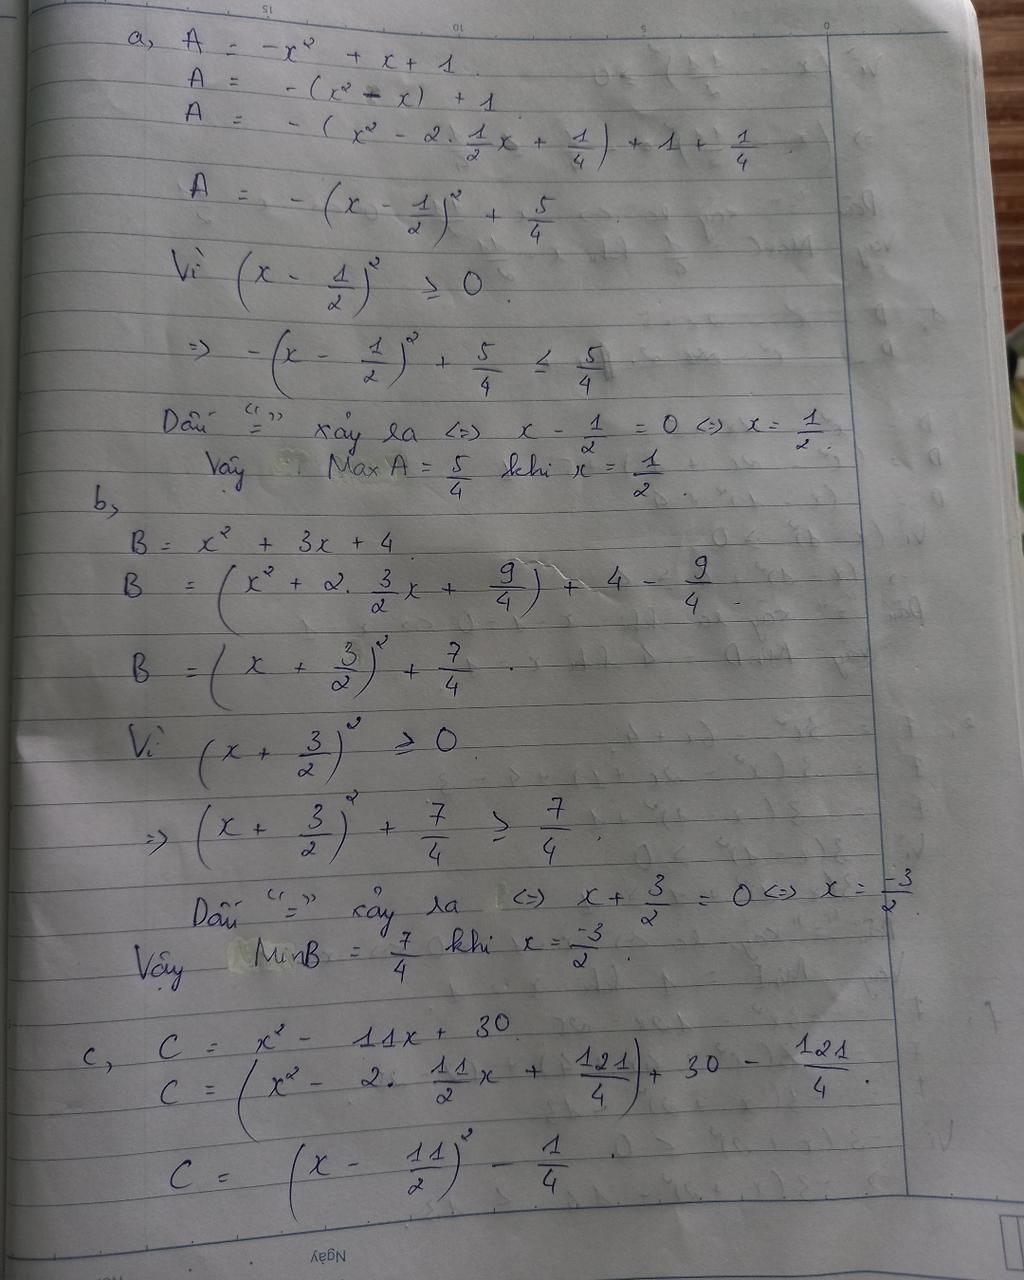 a, A = -x² + x + 1
A = -(x² - x) + 1
A = -(x² - 2. 1/2 x + 1/4) + 1 + 1/4
A = -(x - 1/2)² + 5/4
Vì (x - 1/2)² ≥ 0
=> -(x - 1/2)² + 5/4 ≤ 5/4
Dấu "=" xảy ra <=> x - 1/2 = 0 <=> x = 1/2.
Vậy Max A = 5/4 khi x = 1/2.
b,
B = x² + 3x + 4
B = (x² + 2. 3/2 x + 9/4) + 4 - 9/4
B = (x + 3/2)² + 7/4.
Vì (x + 3/2)² ≥ 0
=> (x + 3/2)² + 7/4 ≥ 7/4.
Dấu "=" xảy ra <=> x + 3/2 = 0 <=> x = -3/2
Vậy MinB = 7/4 khi x = -3/2.
c, C = x² - 11x + 30
C = (x² - 2. 11/2 x + 121/4) + 30 - 121/4.
C = (x - 11/2)² - 1/4.
Ngày